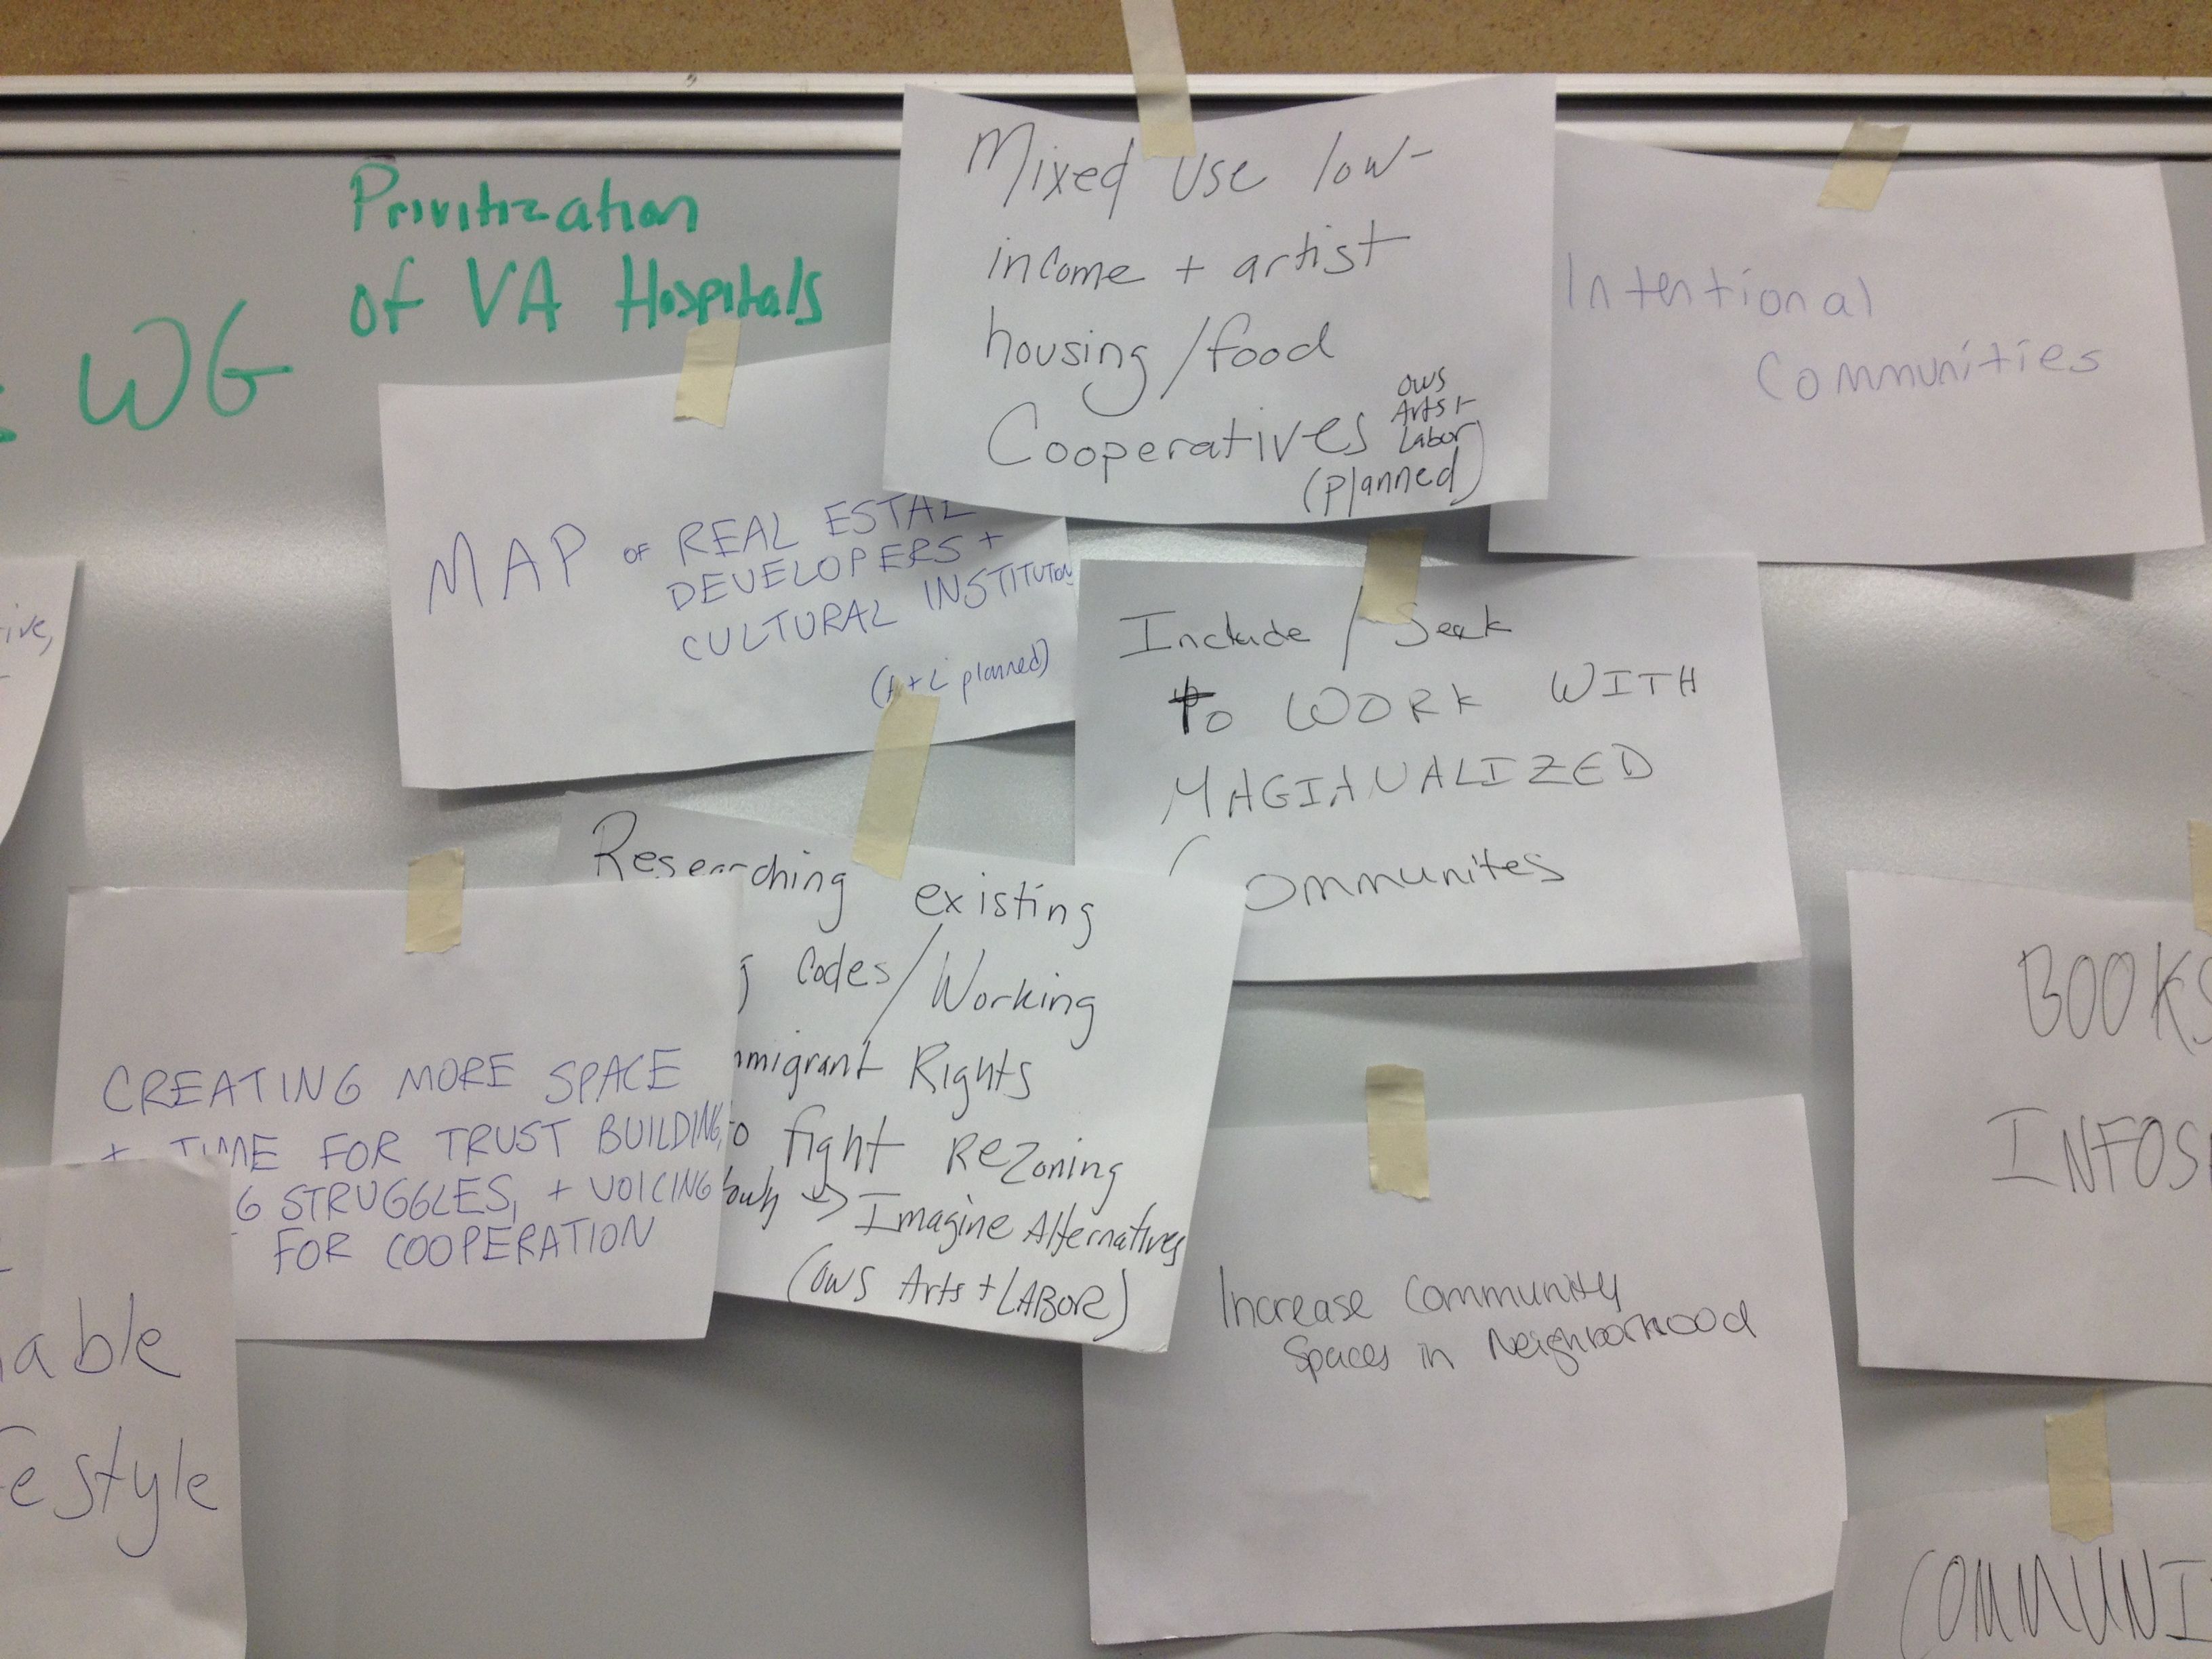 Privitization
of VA Hospitals
WG
Mixed Use low-
income + artist
housing / food
Cooperatives
OWS
Arts +
Labor
(planned)
Intentional
Communities
MAP OF REAL ESTAT
DEVELOPERS +
CULTURAL INSTITUTION
(A + L planned)
Include / Seek
to WORK WITH
MAGIANUALIZED
Communites
ive,
Researching existing
g Codes / Working
mmigrant Rights
to fight ReZoning
Imagine Alternatives
(OWS Arts + LABOR)
CREATING MORE SPACE
+ TIME FOR TRUST BUILDING,
G STRUGGLES, + VOICING
FOR COOPERATION
able
festyle
Increase Community
Spaces in Neighborhood
BOOKS
INFOS
COMMUNI